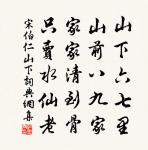 山下六七里
山前八九家
家家清到骨
只賣水仙老
宋伯仁山下詞典網集